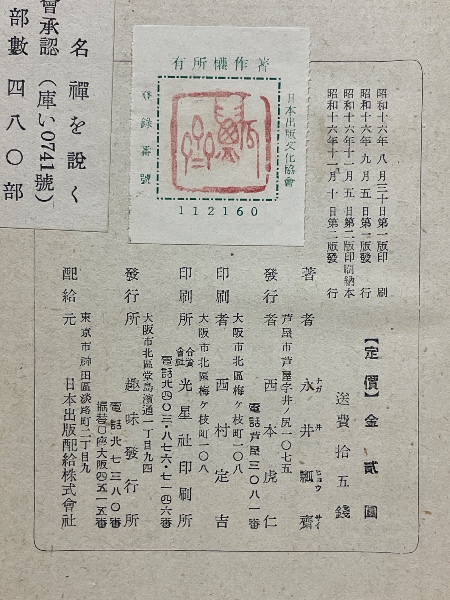 名 禪を說く
會承認（庫い0741號）
部數 四八〇部
著作權所有
日本出版文化協會
登錄番號
112160
昭和十六年八月三十日第一版印刷
昭和十六年九月五日第一版發行
昭和十六年十一月五日第二版印刷納本
昭和十六年十一月十日第二版發行
【定價】金貳圓
送費拾五錢
著者 永井瓢齋
ナガ井ヒョウサイ
蘆屋市蘆屋字井ノ尻一〇七五
發行者 西本虎仁
電話蘆屋三〇八一番
大阪市北區梅ケ枝町一〇八
印刷者 西村定吉
大阪市北區梅ケ枝町一〇八
印刷所 合資會社 光星社印刷所
電話北四〇三・八七六・七一四六番
大阪市北區堂島濱通一丁目九四
發行所 趣味發行所
電話北七三八〇番
振替口座大阪四五一五番
東京市神田區淡路町二丁目九
配給元 日本出版配給株式會社